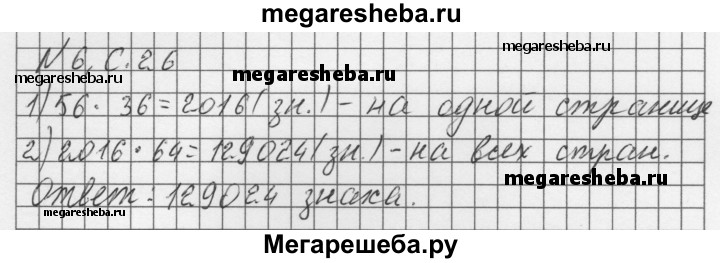 megaresheba.ru
N 6, С. 26
megaresheba.ru megaresheba.ru
1) 56 · 36 = 2016 (зн.) - на одной странице
2) 2016 · 64 = 129024 (зн.) - на всех стран.
megaresheba.ru
Ответ: 129024 знака.
megaresheba.ru
Мегарешеба.ру